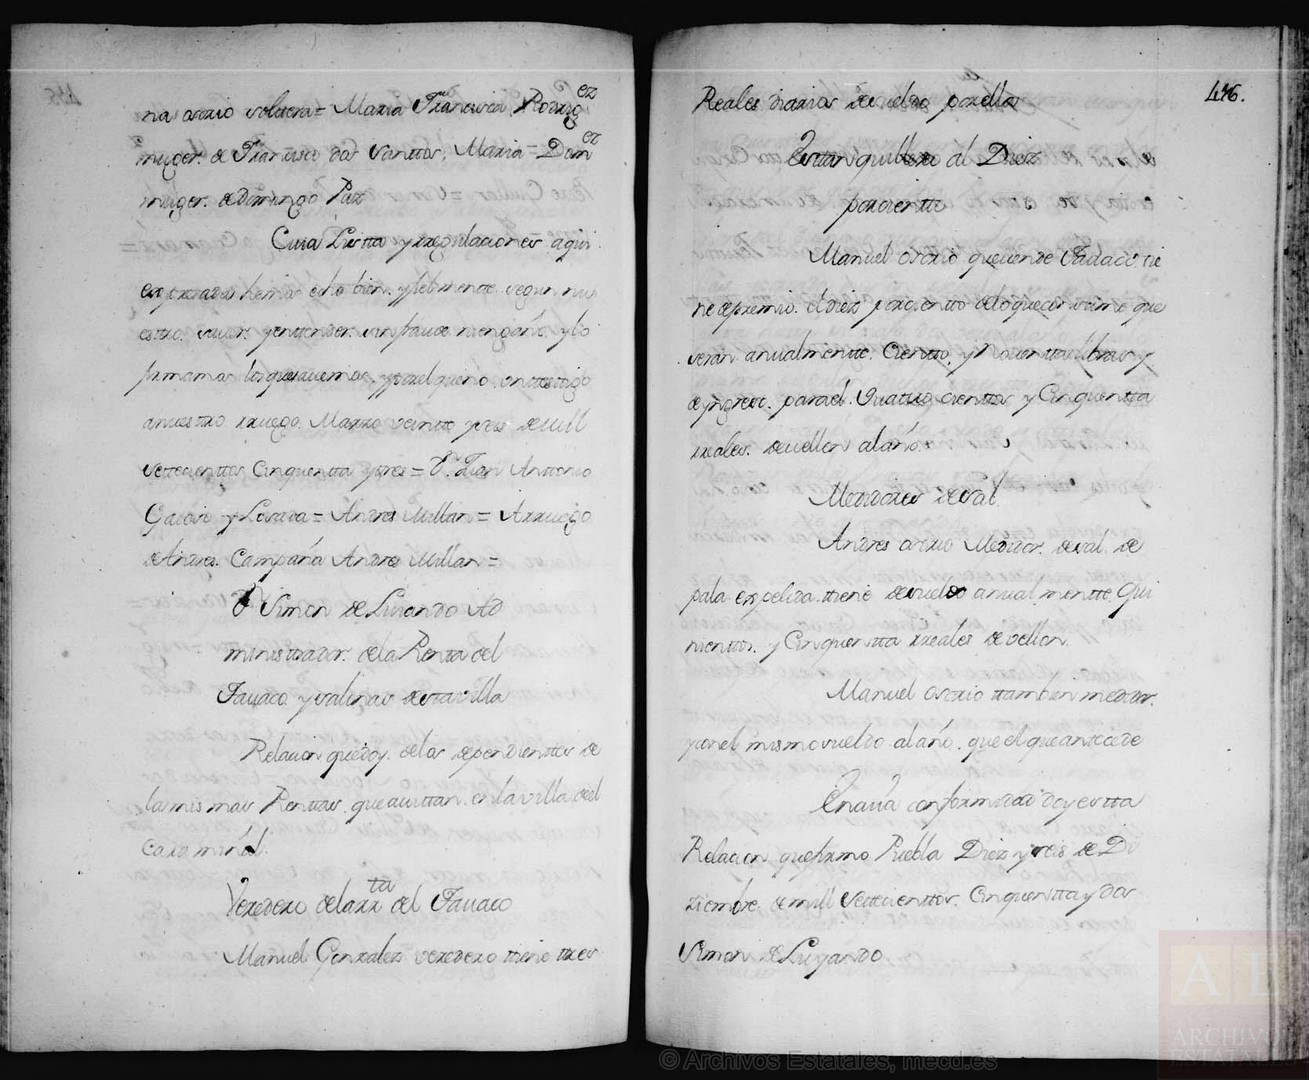 na osorio soltera = Maria Francisca Rodrig^ez
muger. de Francisco dos Santtos, Maria = Dom^ez
muger. de Domingo Paz
Cuia Listta y rregulaciones aqui
expresadas hemos echo bien. y fielmente. segun nu
estro. saver. y enttender. sin fraude ni engaño. y lo
firmamos los que savemos, y por el que no. un testigo
a nuestro rruego. Marzo veintte y seis de mill
settecienttos Cinquentta y tres = D.ⁿ Juan Anttonio
Garcia y Losada = Andres Millan = A rruego
de Andres. Campaña Andres Millan =
D. Simon de Luiando Ad
ministrador. de la Rentta del
Tavaco y salinas de esta villa
Relacion que doy. de los dependienttes de
las mismas Renttas, que asisttan. en la villa del
Caramiñal.
Veredero de la rr^ta del Tavaco
Manuel Gonzalez veredero tiene ttres
Reales diarios de sueldo por ello
Esttanquillero al Diez
porcientto
Manuel osorio que vende Tavaco tie
ne de premio. el diez por cientto de lo que consume que
seran anualmentte. Cientto. y Noventta libras y
de yngreso. para el. Quattro cienttos y Cinquentta
rreales. de vellon al año.
Medidores de sal.
Andres osorio Medidor. de sal. de
pala expelida. ttiene de sueldo anualmentte Qui
nienttos. y Cinquentta rreales de vellon.
Manuel osorio ttambien medidor.
y con el mismo sueldo al año. que el que antecede
En cuia conformidad doy estta
Relacion que firmo Puebla Diez y seis de Di
ziembre. de mill settecienttos. Cinquentta y dos
Simon de Luyando
446.
© Archivos Estatales, mecd.es
AE
ARCHIVOS
ESTATALES